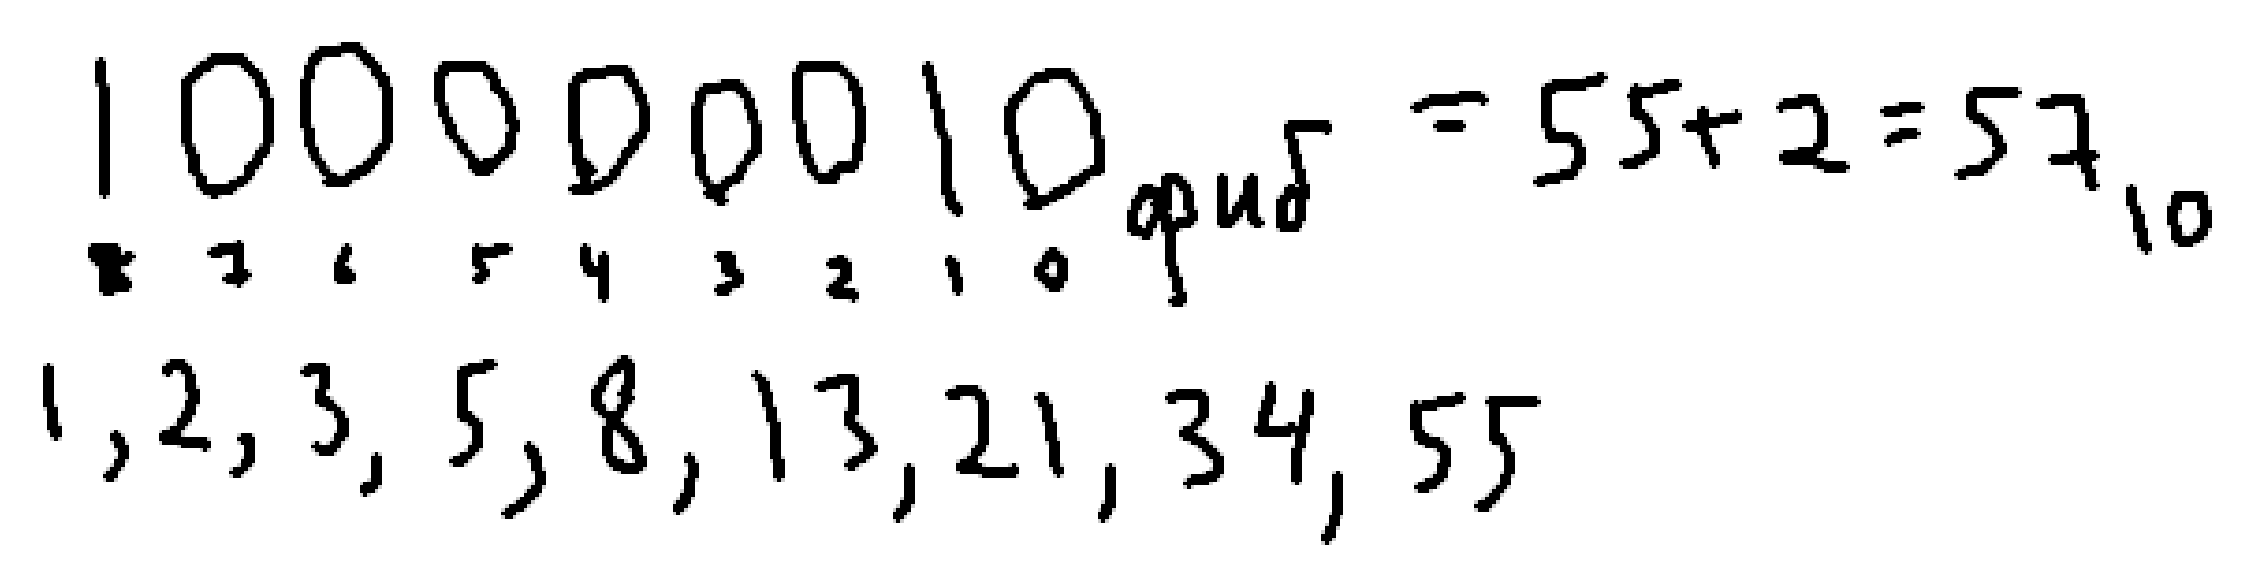 100000010фиб = 55+2=5710
8 7 6 5 4 3 2 1 0
1, 2, 3, 5, 8, 13, 21, 34, 55